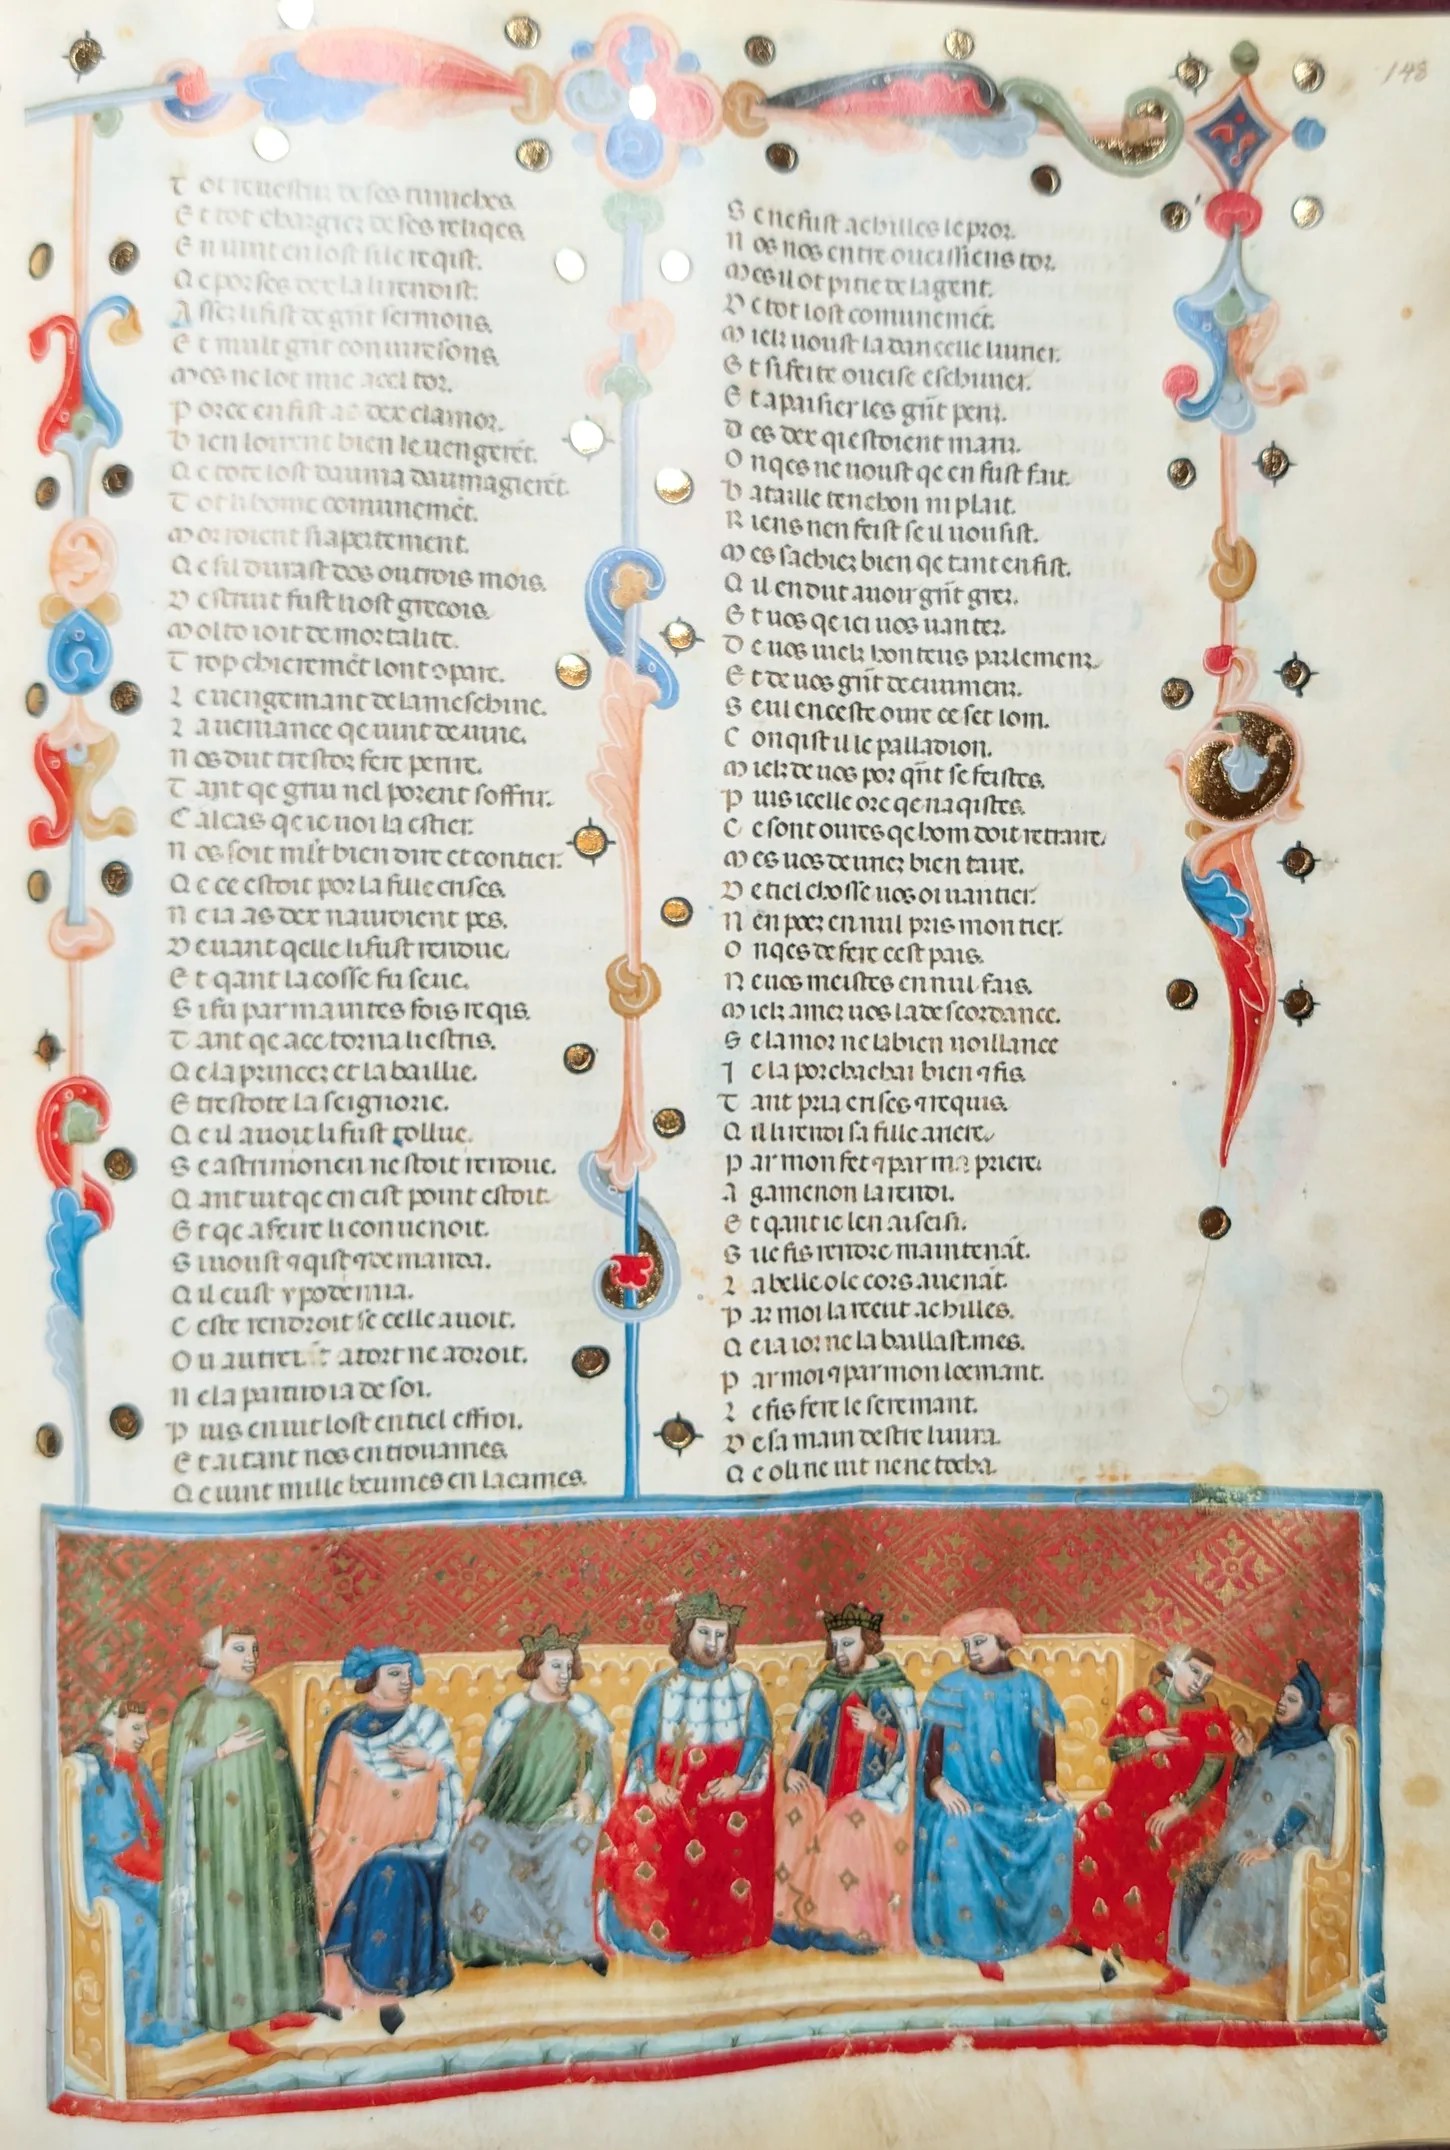 148
T ot reuestuz de ses tuniches.
E t tot chargiez de ses reliqes.
E n uint en lost si le reqist.
Q e por ses dex la li rendist.
A ssez li fist de gñt sermons.
E t mult gñt conuiresons.
M es ne lot mie acel tor.
P orce en fist as dex clamor.
B ien loirent bien le uengerẽt.
Q e tote lost dauma daumagierẽt.
T ot li home comunemẽt.
M orroient si apertement.
Q e sil durast dos ou trois mois.
D estruit fust lost grecois.
M olt o ioit de mortalite.
T rop chieremẽt lont ɔpare.
L e uengemant de la meschine.
L a ueniance qe uint deuine.
N os dut trestoz fere perire.
T ant qe griu nel porent soffrir.
C alcas qe ie uoi la estier.
N os soit mlt bien dire et contier.
Q e ce estoit por la fille crises.
N e ia as dex nauroient pes.
D euant qelle li fust rendue.
E t qant la cosse fu seue.
S i fu par maintes fois reqis.
T ant qe ace torna li estris.
Q e la princez et la baillie.
E trestote la seignorie.
Q e il auoit li fust tollue.
S e astrimonen nestoit rendue.
Q ant uit qe en cist point estoit.
E t qe afeire li conuenoit.
S i uoust ⁊ qist ⁊ demanda.
Q il eust ypodemia.
C este rendroit se celle auoit.
O u autrei atort ne adroit.
N e la partiroia de soi.
P uis en uit lost en tiel effroi.
E t aitant nos en trouames.
Q e uint mille heumes en lacames.
S e ne fust achilles le proz.
N os nos entre oucissiens toz.
M es il ot pitie de la gent.
D e tot lost comunemẽt.
M ielz uoust la dancelle liurier.
E t si freire oucise eschiuier.
E t apaisier les gñt periz.
D es dex qi estoient mariz.
O nqes ne uoust qe en fust fait.
B ataille tenchon ni plait.
R iens nen feist se il uousist.
M es sachiez bien qe tant en fist.
Q il en dut auoir gñt grez.
E t uos qe ici uos uantez.
D e uos uielz honteus parlemenz.
E t de uos gñt deciuimenz.
S eul en ceste oure ce set lom.
C onqist il le palladion.
M ielz de uos por qñt se feistes.
P uis icelle ore qe naqistes.
C e sont oures qe hom doit retraire.
M es uos deuriez bien taire.
D e tiel chosse uos oi uantier.
N en poez en nul pris montier.
O nqes de fere cest pais.
N e uos meistes en nul fais.
M ielz amez uos la descordance.
S e lamor ne la bien uoillance
I e la porchachai bien ⁊ fis.
T ant pria crises ⁊ requis.
Q il li rendi sa fille ariere.
P ar mon fet ⁊ par ma priere.
A gamenon la rendi.
E t qant ie len aiseisi.
S i le fis rendre maintenãt.
L a belle o le cors auenãt.
P ar moi la recut achilles.
Q e ia ior ne la baillast mes.
P ar moi ⁊ par mon loemant.
L e fis fere le seremant.
D e sa main destre liiura.
Q e o li ne iut ne ne tocha.